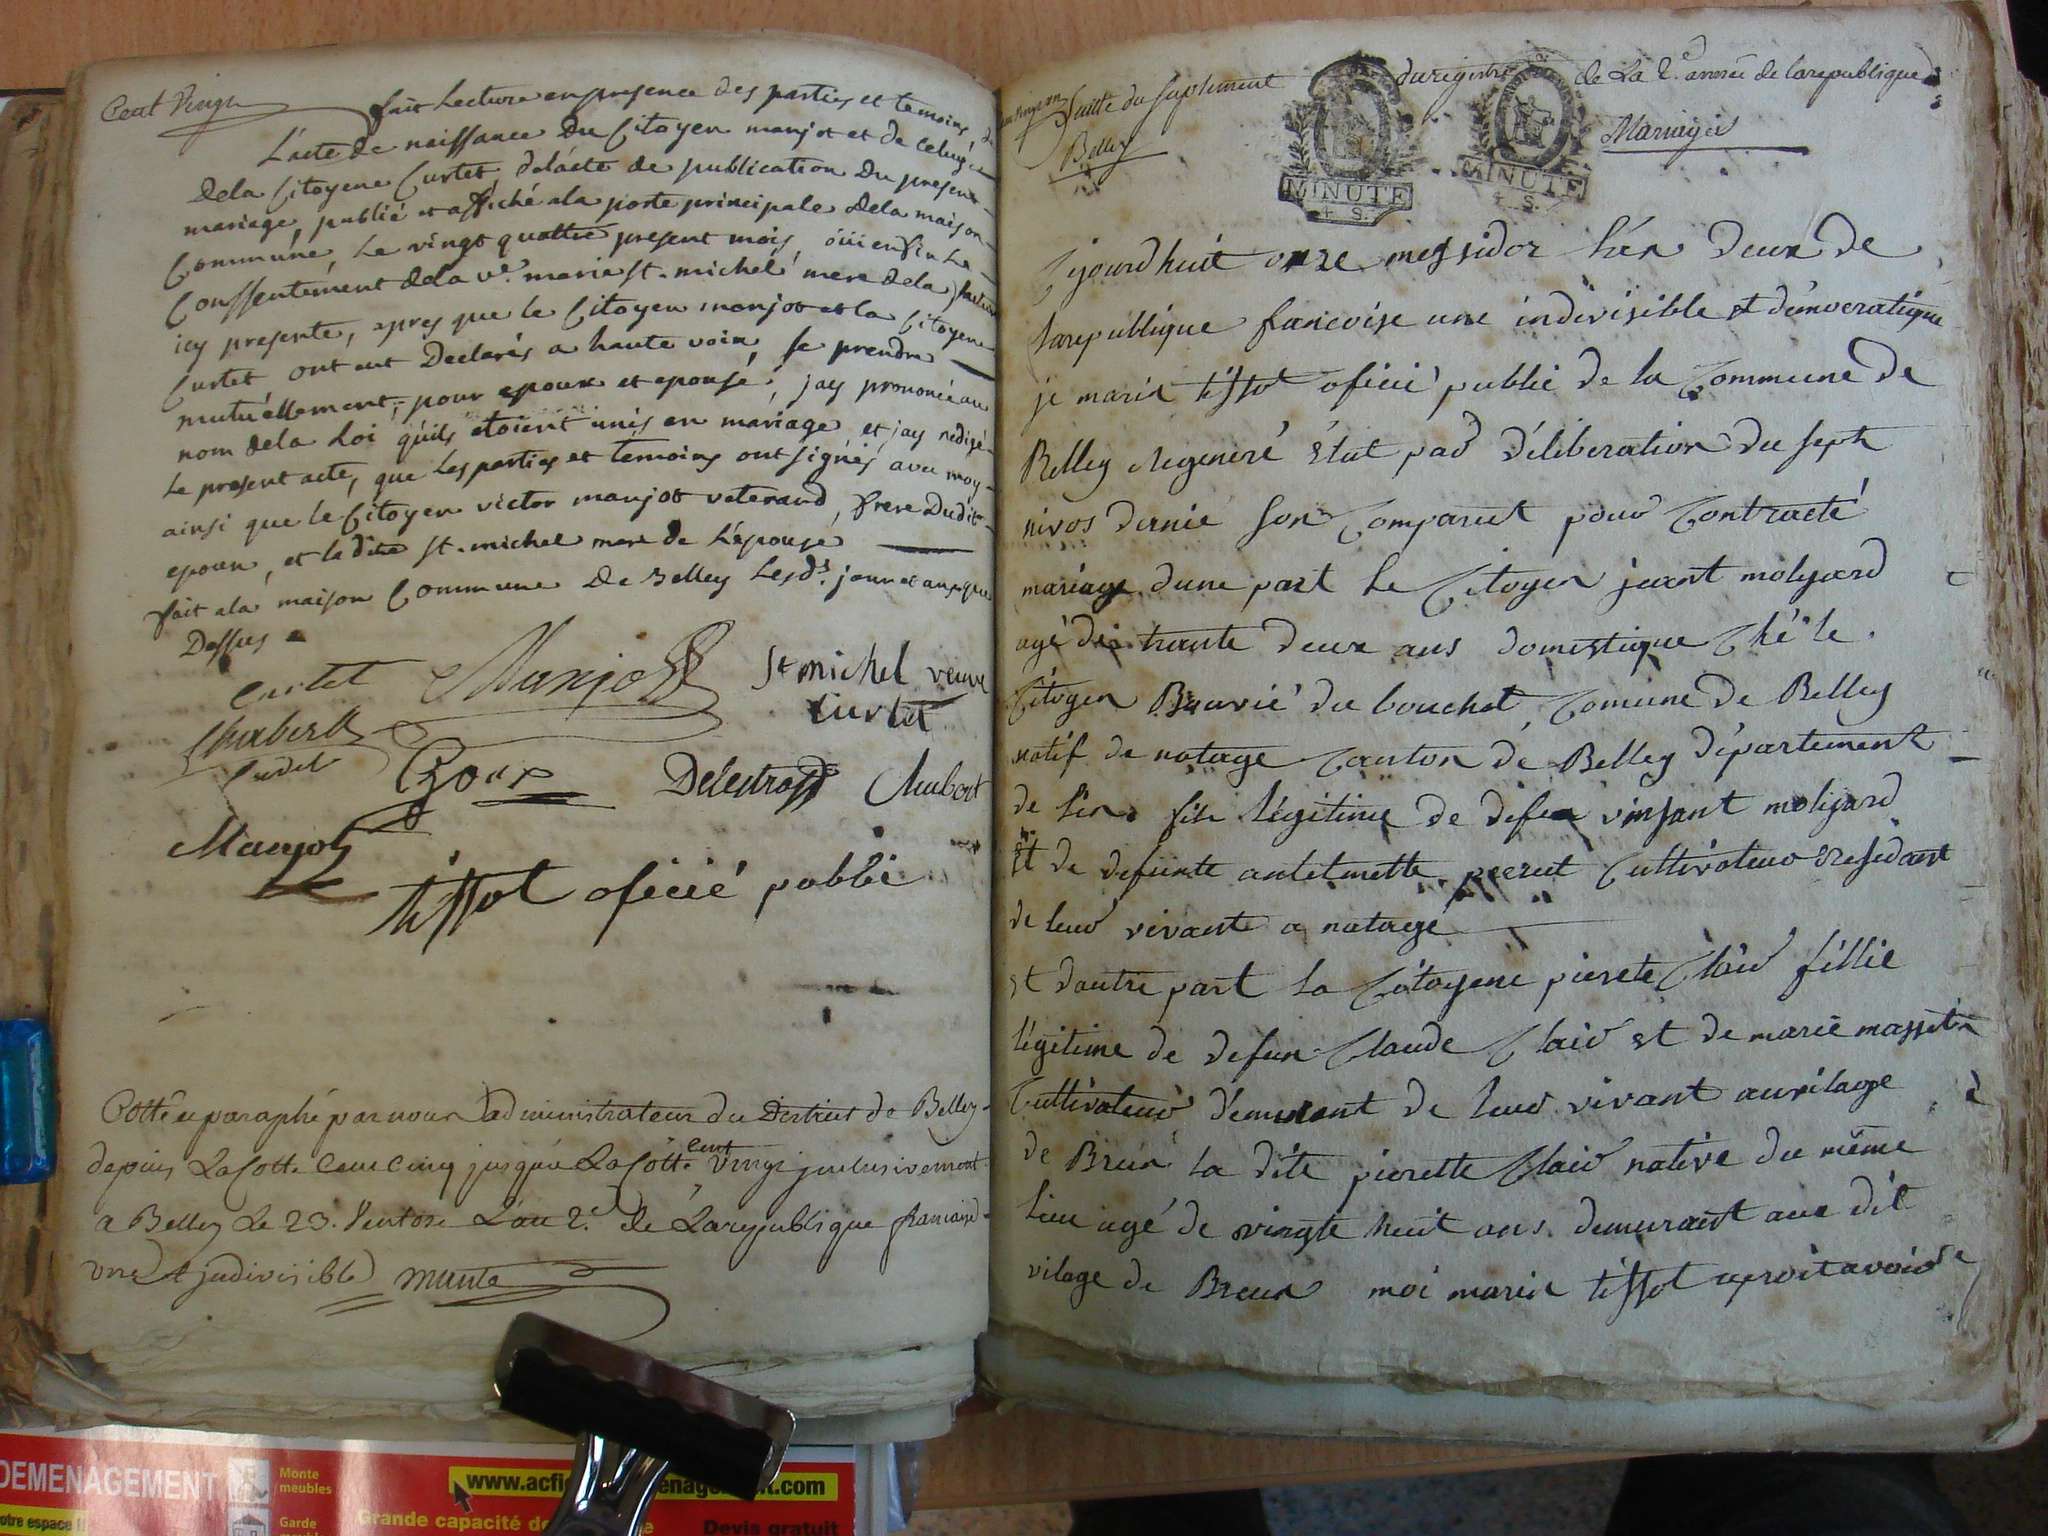 Cent Vingt
fait Lecture en presence des parties et temoins, de
L'acte de naissance Du Citoyen manjot et de celuy
dela Citoyene Curtet, delacte de publication Du present
mariage, publié et affiché ala porte principale dela maison
Commune, Le vingt quattre present mois, öui enfin Le
Conssentement dela ve. marie st. michel mere dela
icy presente, apres que le Citoyen manjot et la Citoyene
Curtet ont eut Declarés a haute voix, se prendre
mutuellement, pour epoux et epousé, jay prononcé au
nom dela Loi quils etoient unis en mariage et jay redigé
Le present acte, que Les parties et temoins ont signés avec moy
ainsi que le Citoyen victor manjot veterand, frere Dudit
epoux, et ladite st. michel mere de L'épousé
fait ala maison Commune De Belley Lesds. jour et an que
Dessus
Curtet Manjot St michel veuve
Curtet
Chubert
Curtet Groux Delestraz Chubert
Manjot
tissot oficié public
Cotté et paraphé par nous administrateur du District de Belley
depuis La Cotte Cent Cinq jusqu'a La Cotte Cent vingt inclusivement
a Belley Le 23. Ventose L'an 2.e de La republique francaise
une et indivisible
Suitte du suplement du registre de La 2.e année de la republique
Belley Mariages
MINUTE
4 S.
MINUTE
4 S.
Cejourdhuit onze messidor l'én deux de
larepublique francoise une indivisible et démocratique
je marin tissot oficié public de la Commune de
Belley Regeneré élut par déliberation du sept
nivos dernie son Comparut pour Contracté
mariage dune part le Citoyen jeant moligard
agé de trante deux ans domestique Ché le
Citoyen Bouvié du bouchet, Comune de Belley
natif de natage Canton de Belley département
de lin fils légitime de defun vinsant moligard
et de defunte antelmette perret Cultivateur Residant
de leur vivant a natage
et dautre part la Citoyene pierete Clair fillie
légitime de defun Claude Clair et de marie massetin
Cultivateur démurant de leur vivant au vilage
de Breun la dite pierette Clair native du même
lieu agé de vingte huit ans demurant aux dit
vilage de Breun moi marin tissot aproit avoir
DEMENAGEMENT
Monte
meubles
Garde
www.acfi
enagement.com
Grande capacité de
Devis gratuit